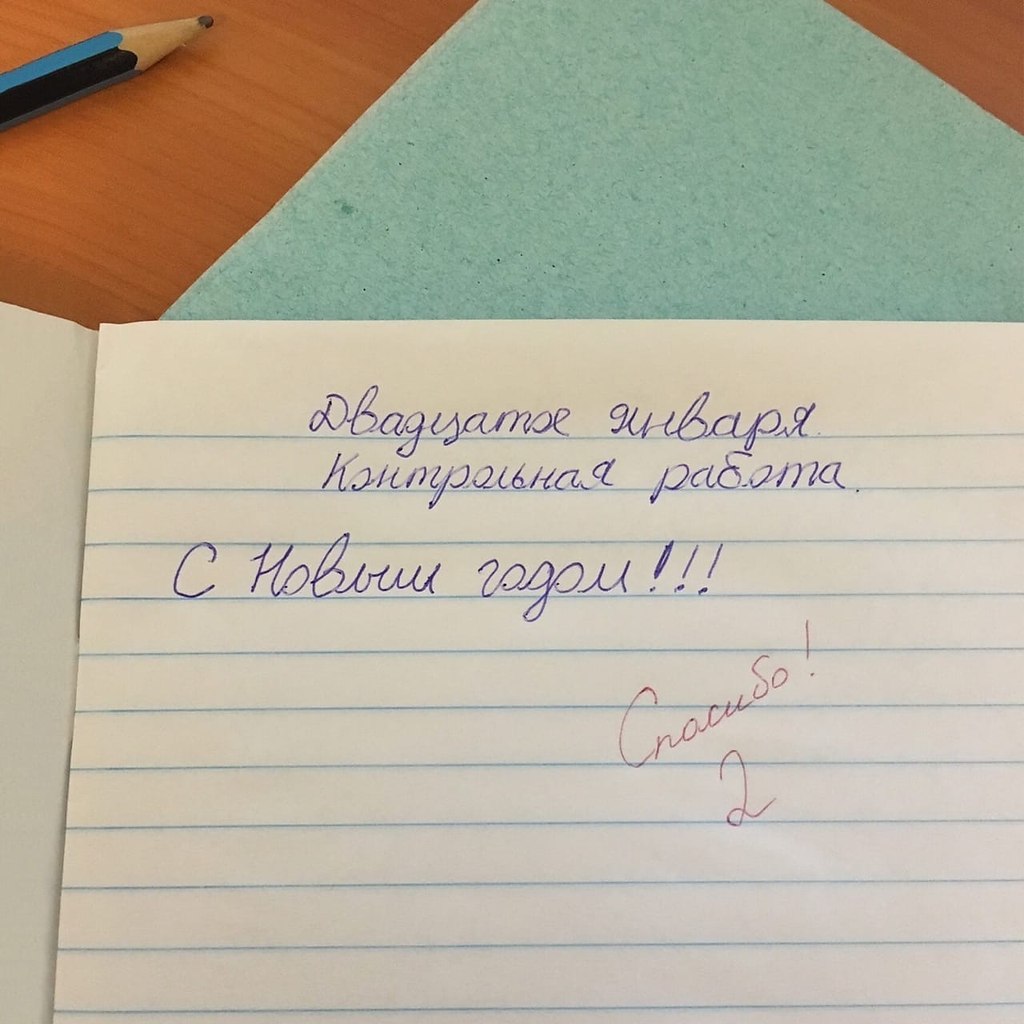 Двадцатое января.
Контрольная работа.
С Новым годом!!!
Спасибо!
2